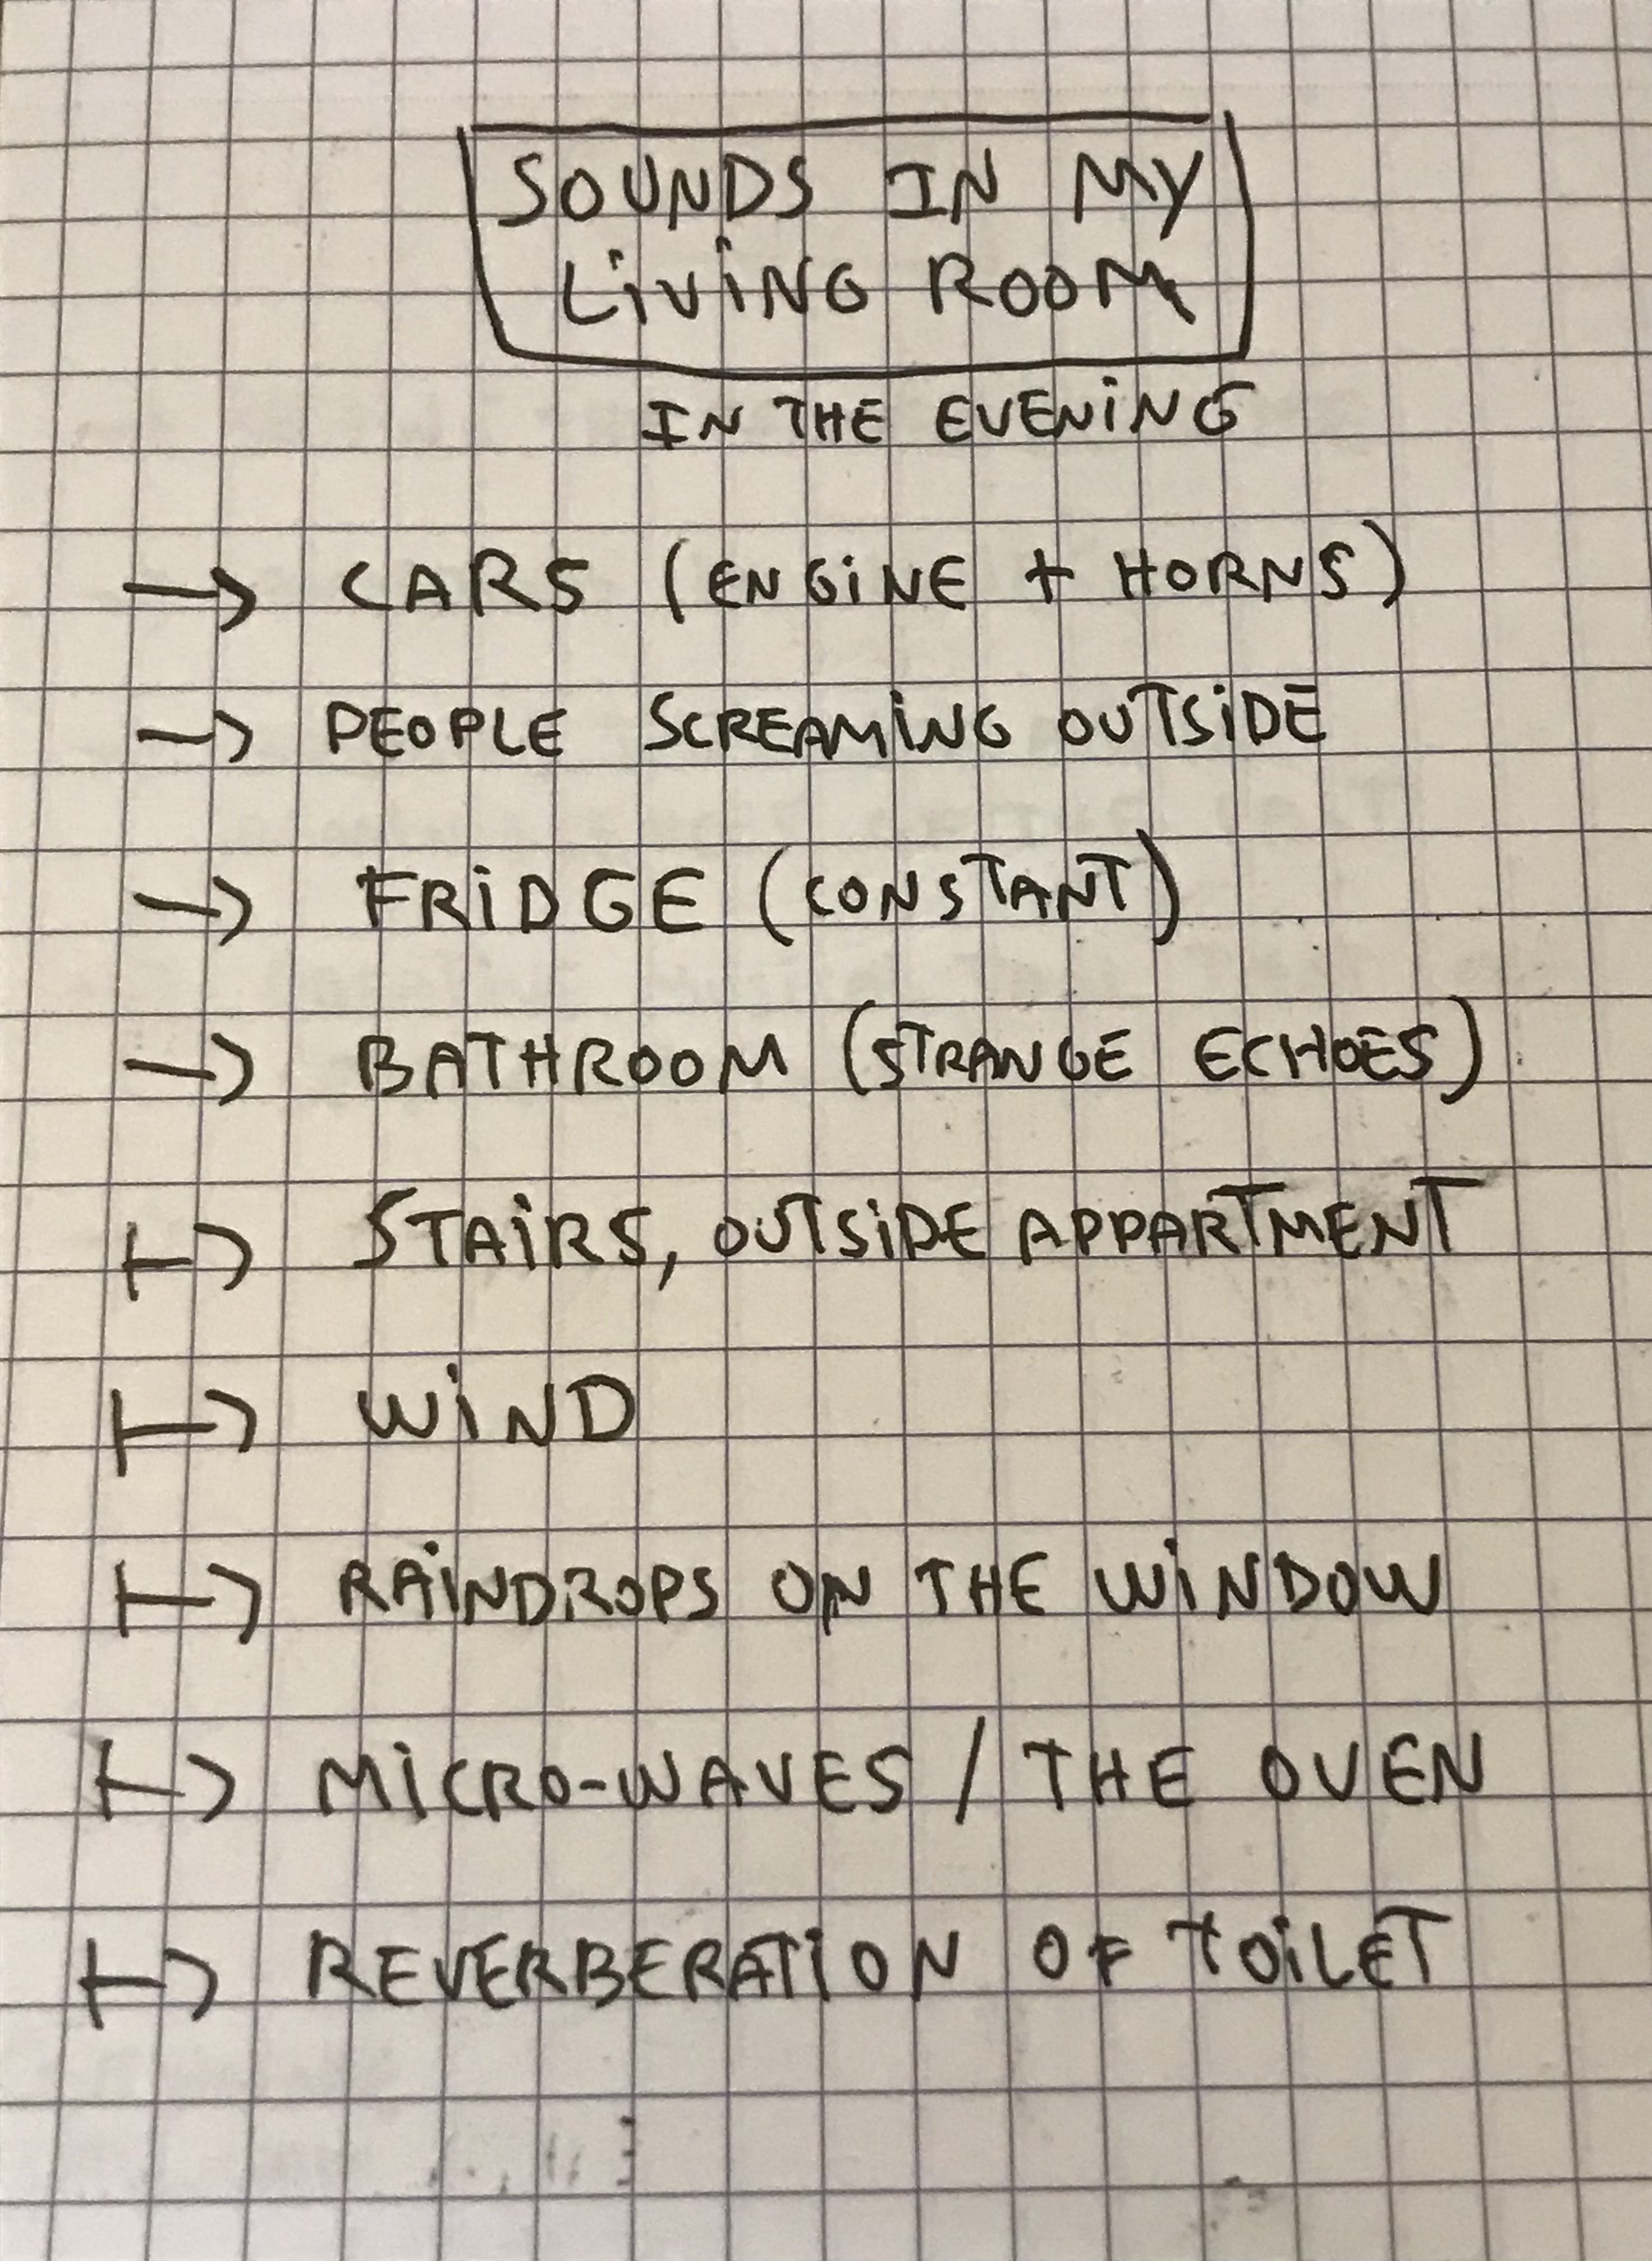 SOUNDS IN MY
LiViNG ROOM
IN THE EVENiNG
→ CARS (ENGiNE + HORNS)
→ PEOPLE SCREAMiNG OUTSiDE
→ FRiDGE (CONSTANT)
→ BATHROOM (STRANGE ECHOES)
↦ STAiRS, OUTSiDE APPARTMENT
↦ WiND
↦ RAiNDROPS ON THE WiNDOW
↦ MiCRO-WAVES / THE OVEN
↦ REVERBERATiON OF TOiLET